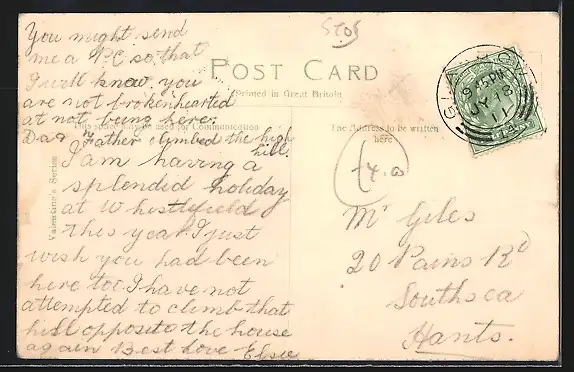 You might send
me a P.C so that
I will know you
are not brokenhearted
at not being here.
Dad Father climbed the high
hill.
I am having a
splendid holiday
at Whistlefield
this year. I just
wish you had been
here too. I have not
attempted to climb that
hill opposite the house
again Best love Elsie
POST CARD
Printed in Great Britain
This space may be used for Communication
The Address to be written
here
Valentine's Series
4.00
Mr Giles
20 Pains Rd
Southsea
Hants.
9 15PM
JY 18
11